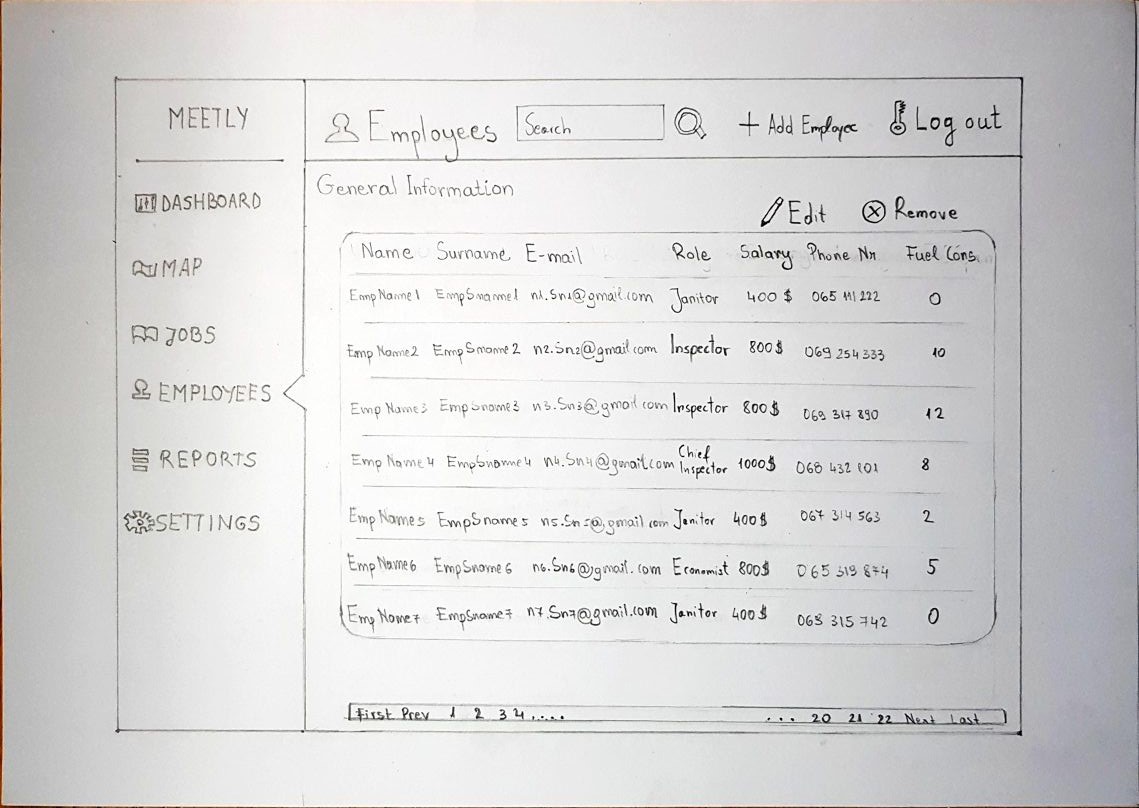 MEETLY
DASHBOARD
MAP
JOBS
EMPLOYEES
REPORTS
SETTINGS
Employees Search + Add Employee Log out
General Information
Edit Remove
Name Surname E-mail Role Salary Phone Nr. Fuel Cons.
Emp Name1 EmpSname1 n1.Sn1@gmail.com Janitor 400 $ 065 111 222 0
Emp Name2 EmpSname2 n2.Sn2@gmail.com Inspector 800$ 069 254 333 10
Emp Name3 EmpSname3 n3.Sn3@gmail.com Inspector 800$ 069 317 890 12
Emp Name4 EmpSname4 n4.Sn4@gmail.com Chief Inspector 1000$ 068 432 101 8
Emp Name5 EmpSname5 n5.Sn5@gmail.com Janitor 400$ 067 314 563 2
Emp Name6 EmpSname6 n6.Sn6@gmail.com Economist 800$ 065 319 874 5
Emp Name7 EmpSname7 n7.Sn7@gmail.com Janitor 400$ 068 315 742 0
First Prev 1 2 3 4 .... ... 20 21 22 Next Last